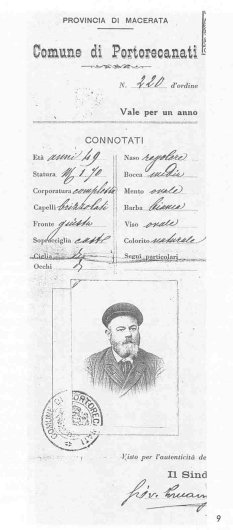 PROVINCIA DI MACERATA
Comune di Portorecanati
N. 220 d'ordine
Vale per un anno
CONNOTATI
Età anni 49
Statura M 1.70
Corporatura complessa
Capelli brizzolati
Fronte giusta
Sopracciglia cast
Ciglia
Occhi
Naso regolare
Bocca media
Mento ovale
Barba bianca
Viso ovale
Colorito naturale
Segni particolari
COMUNE DI PORTORECANATI
Visto per l'autenticità de
Il Sind
9